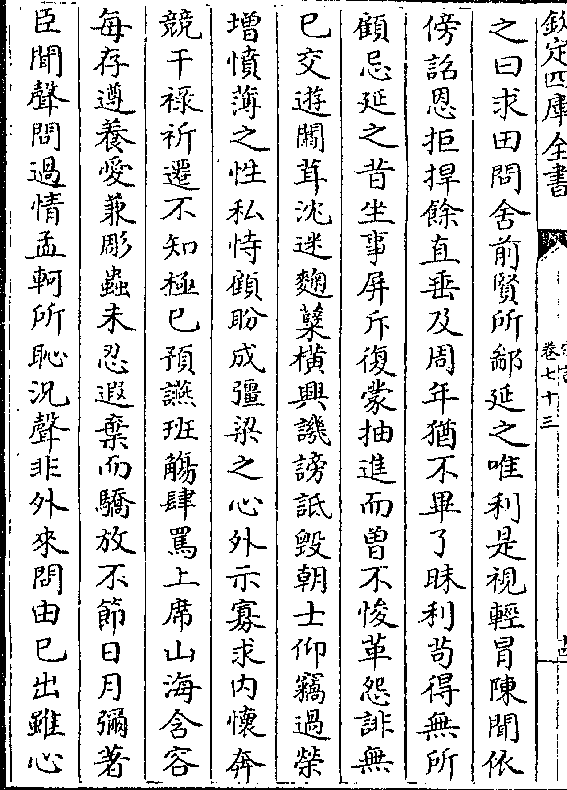 欽定四庫全書
卷七十三
之曰求田問舍前賢所鄙延之唯利是視輕冒陳聞依
傍詔恩拒捍餘直垂及周年猶不畢了昧利苟得無所
顧忌延之昔坐事屏斥復蒙抽進而曽不悛革怨誹無
已交遊闒茸沈迷麴糵横興譏謗詆毀朝士仰竊過榮
增憤薄之性私恃顧盼成彊梁之心外示寡求内懷奔
競干禄祈遷不知極已預讌班觴肆罵上席山海含容
每存遵養愛兼彫蟲未忍遐棄而驕放不節日月彌著
臣聞聲問過情孟軻所恥況聲非外來問由已出雖心